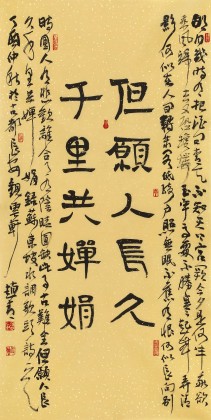 明月幾時有把酒問青天不知天上宮闕今夕是何年我欲
乘風歸去又恐瓊樓玉宇高處不勝寒起舞弄清
影何似在人間轉朱閣低綺户照無眠不應有恨何似長向別
但願人長久
千里共嬋娟
時圓人有悲歡離合月有陰晴圓缺此事古難全但願人長
久千里共嬋娟 錄蘇東坡水調歌頭詩
丁酉仲秋於古都長安